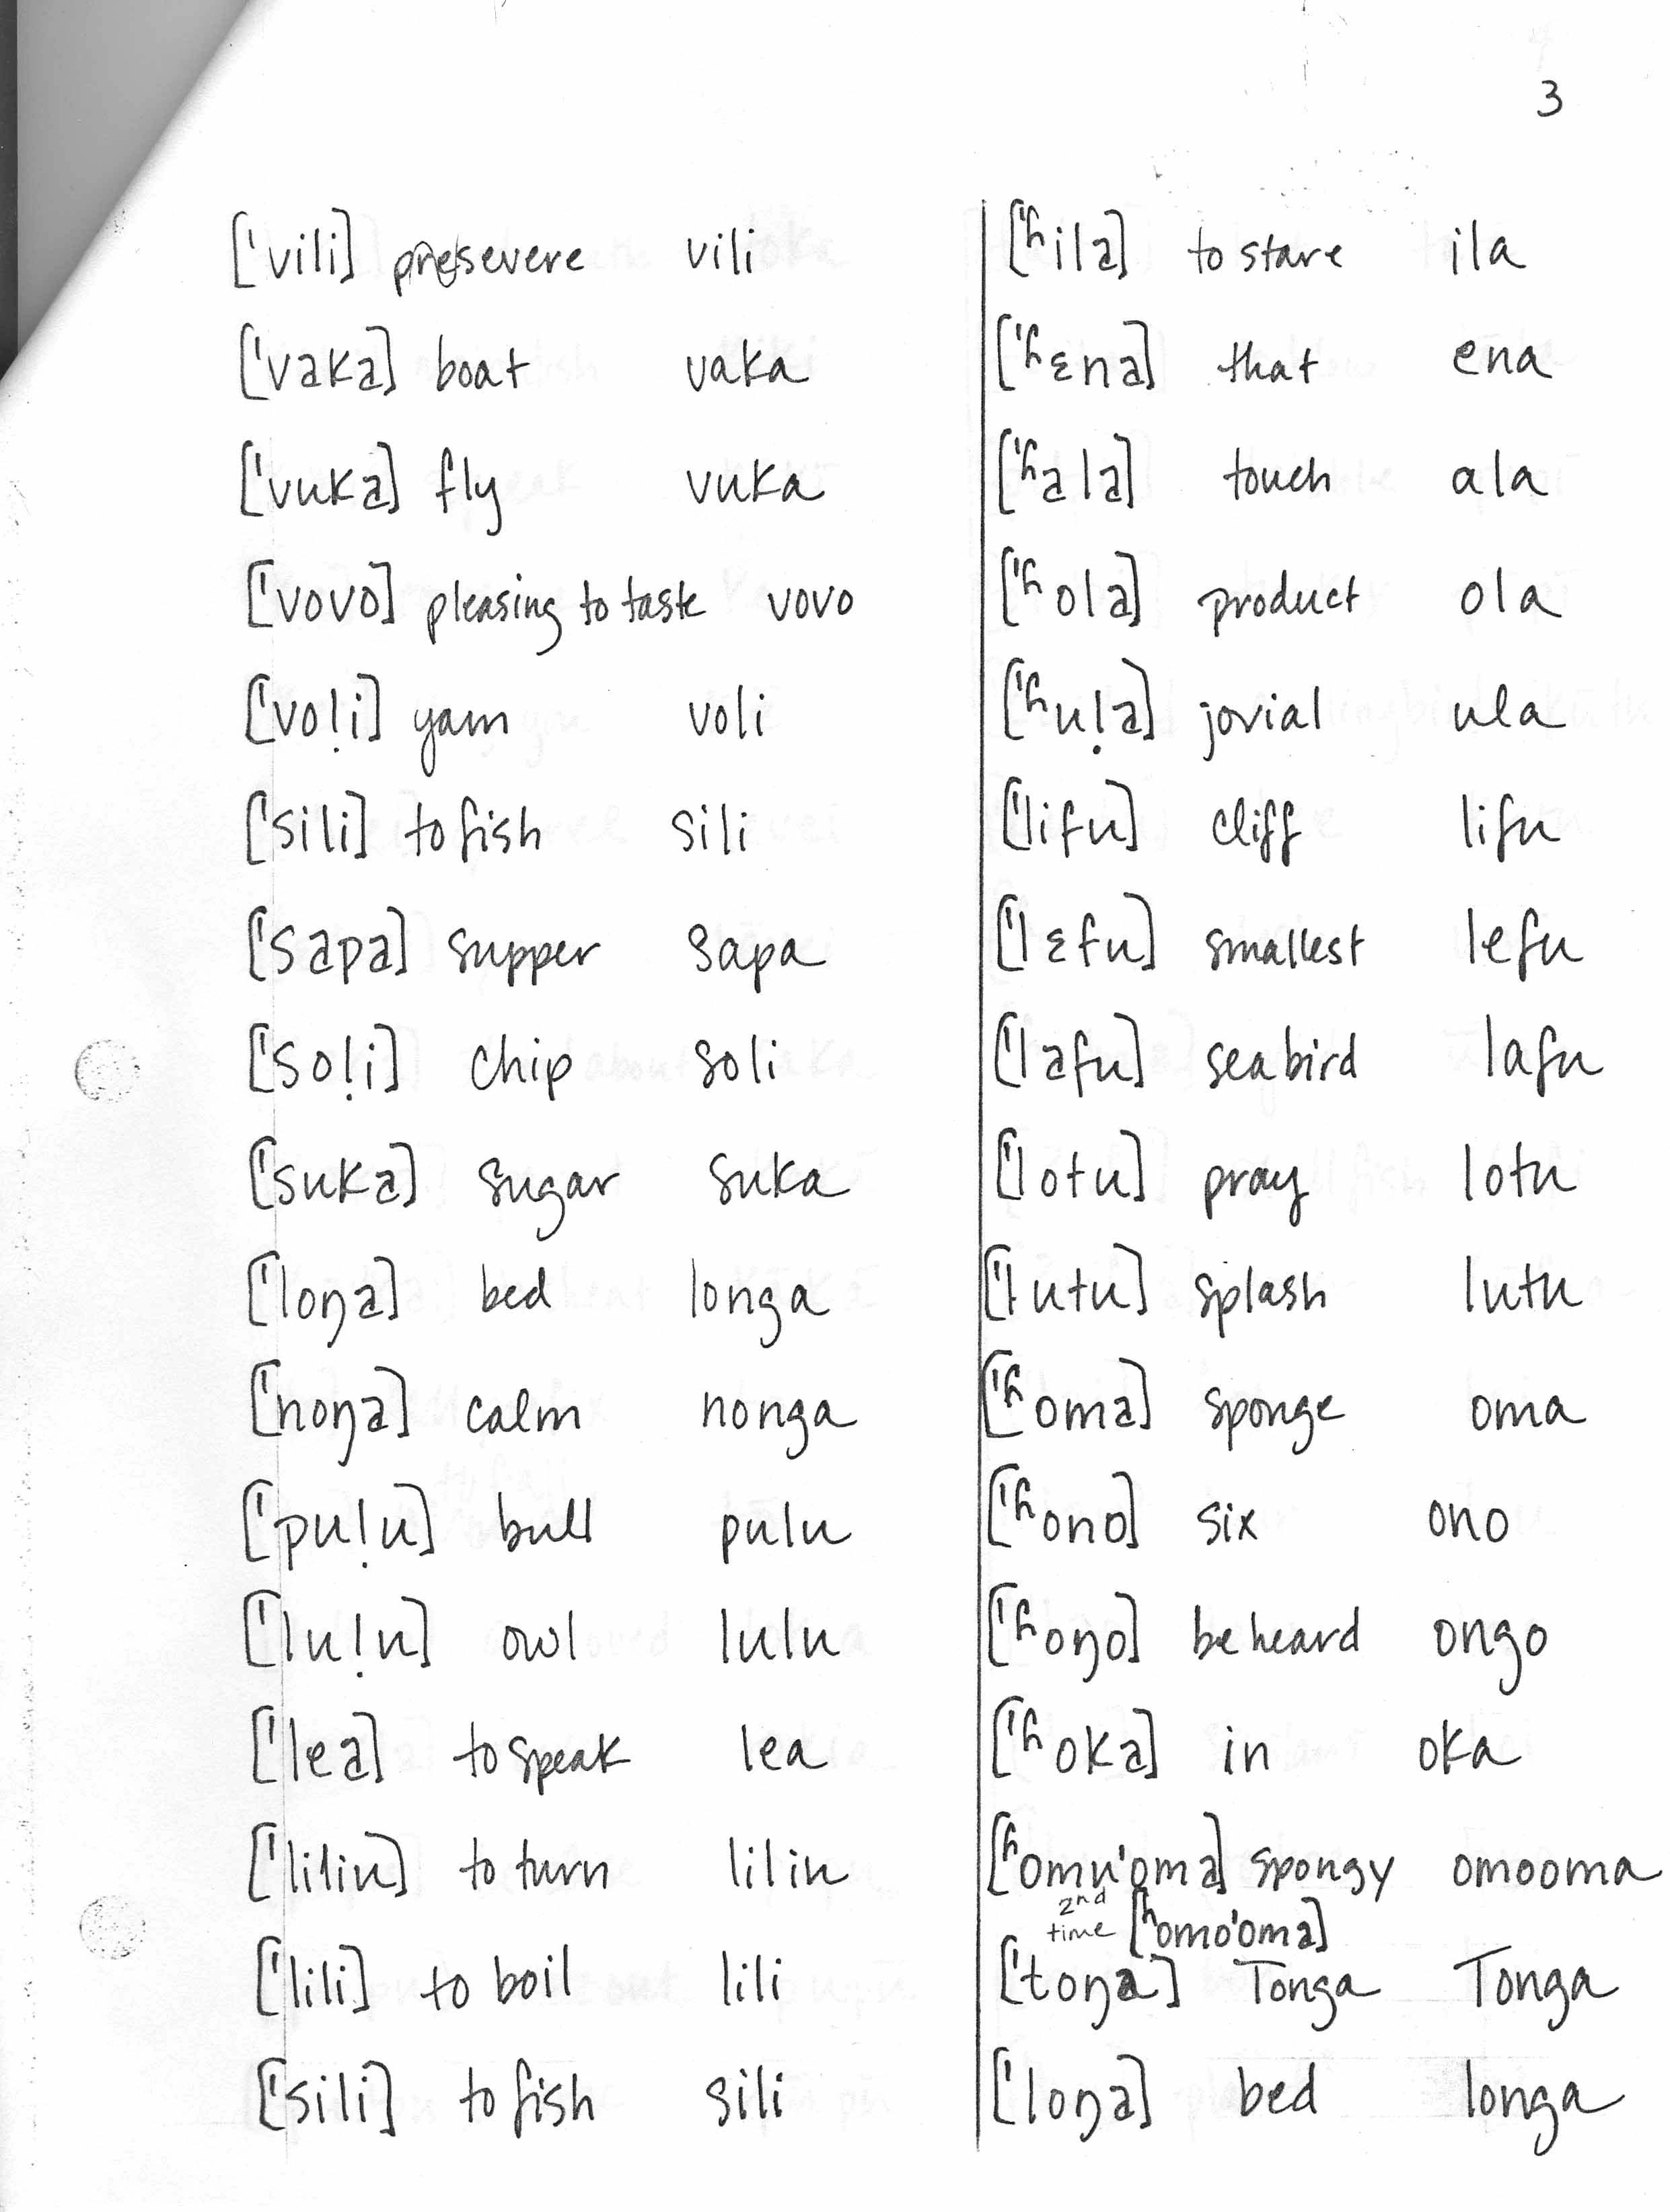 3
['vili] presevere vili
['vaka] boat vaka
['vuka] fly vuka
['vovo] pleasing to taste vovo
['vol̩i] yam voli
['sili] to fish sili
['sapa] supper sapa
['sol̩i] chip soli
['suka] sugar suka
['loŋa] bed longa
['noŋa] calm nonga
['pul̩u] bull pulu
['lul̩u] owl lulu
['lea] to speak lea
['liliu] to turn liliu
['lili] to boil lili
['sili] to fish sili
['ʱila] to stare ila
['ʱɛna] that ena
['ʱala] touch ala
['ʱola] product ola
['ʱuḷa] jovial ula
['lifu] cliff lifu
['lɛfu] smallest lefu
['lafu] sea bird lafu
['lotu] pray lotu
['lutu] splash lutu
['ʱoma] sponge oma
['ʱono] six ono
['ʱoŋo] be heard ongo
['ʱoka] in oka
[ʱomu'oma] spongy omooma
2nd time [ʱomo'oma]
['toŋa] Tonga Tonga
['loŋa] bed longa